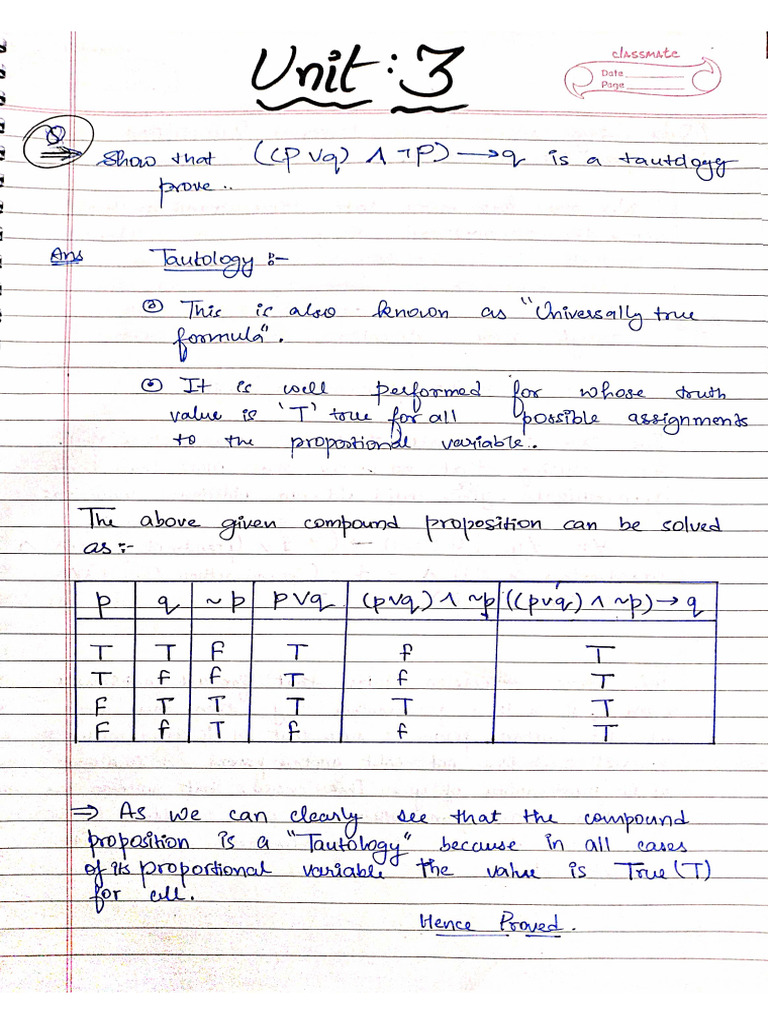 Unit : 3
classmate
Date
Page
Q
Show that ((p ∨ q) ∧ ¬p) → q is a tautology
prove..
Ans Tautology :-
This is also known as "Universally true
formula".
It is well performed for whose truth
value is 'T' true for all possible assignments
to the proportional variable..
The above given compound proposition can be solved
as :-
p q ~p p∨q (p∨q) ∧ ~p ((p∨q) ∧ ~p) → q
T T F T f T
T f f T f T
F T T T T T
F f T f f T
⇒ As we can clearly see that the compound
proposition is a "Tautology" because in all cases
of its proportional variable the value is True (T)
for all.
Hence Proved.